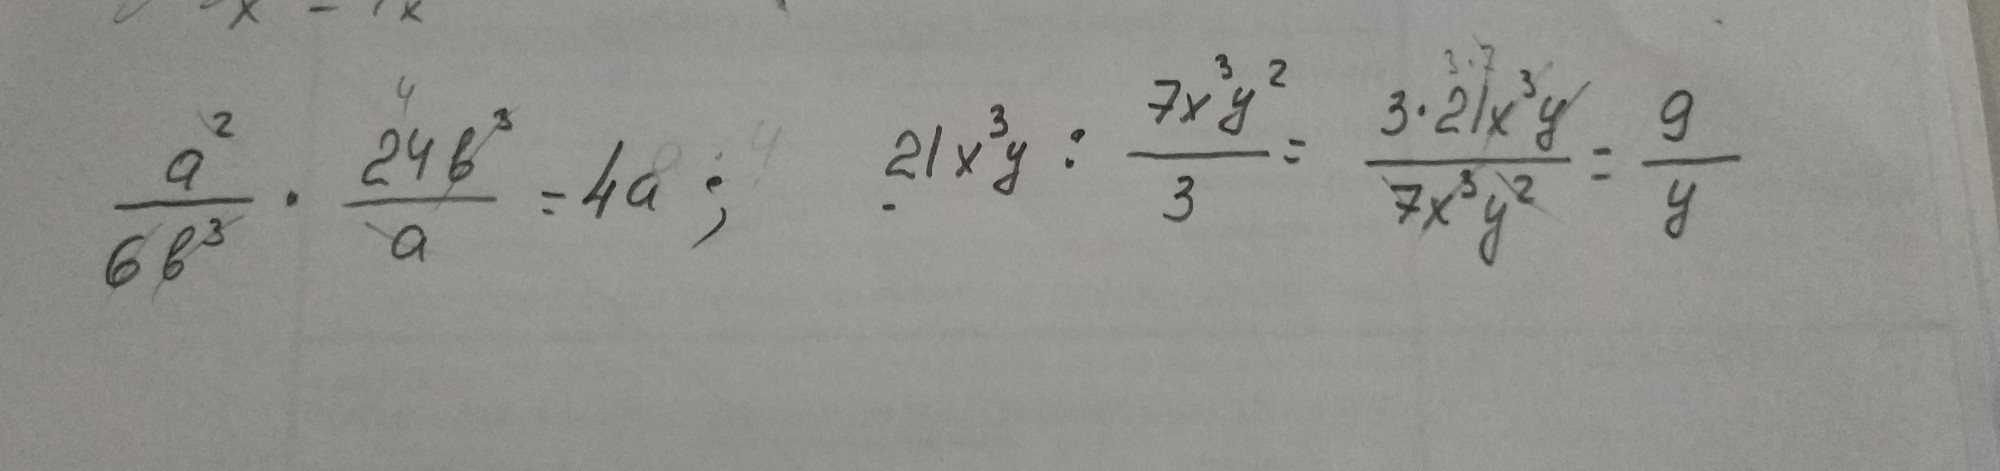 x - 4x
a²/6b³ · 24b³/a = 4a ; 21x³y : 7x³y²/3 = 3·21x³y/7x³y² = 9/y
4
3·7